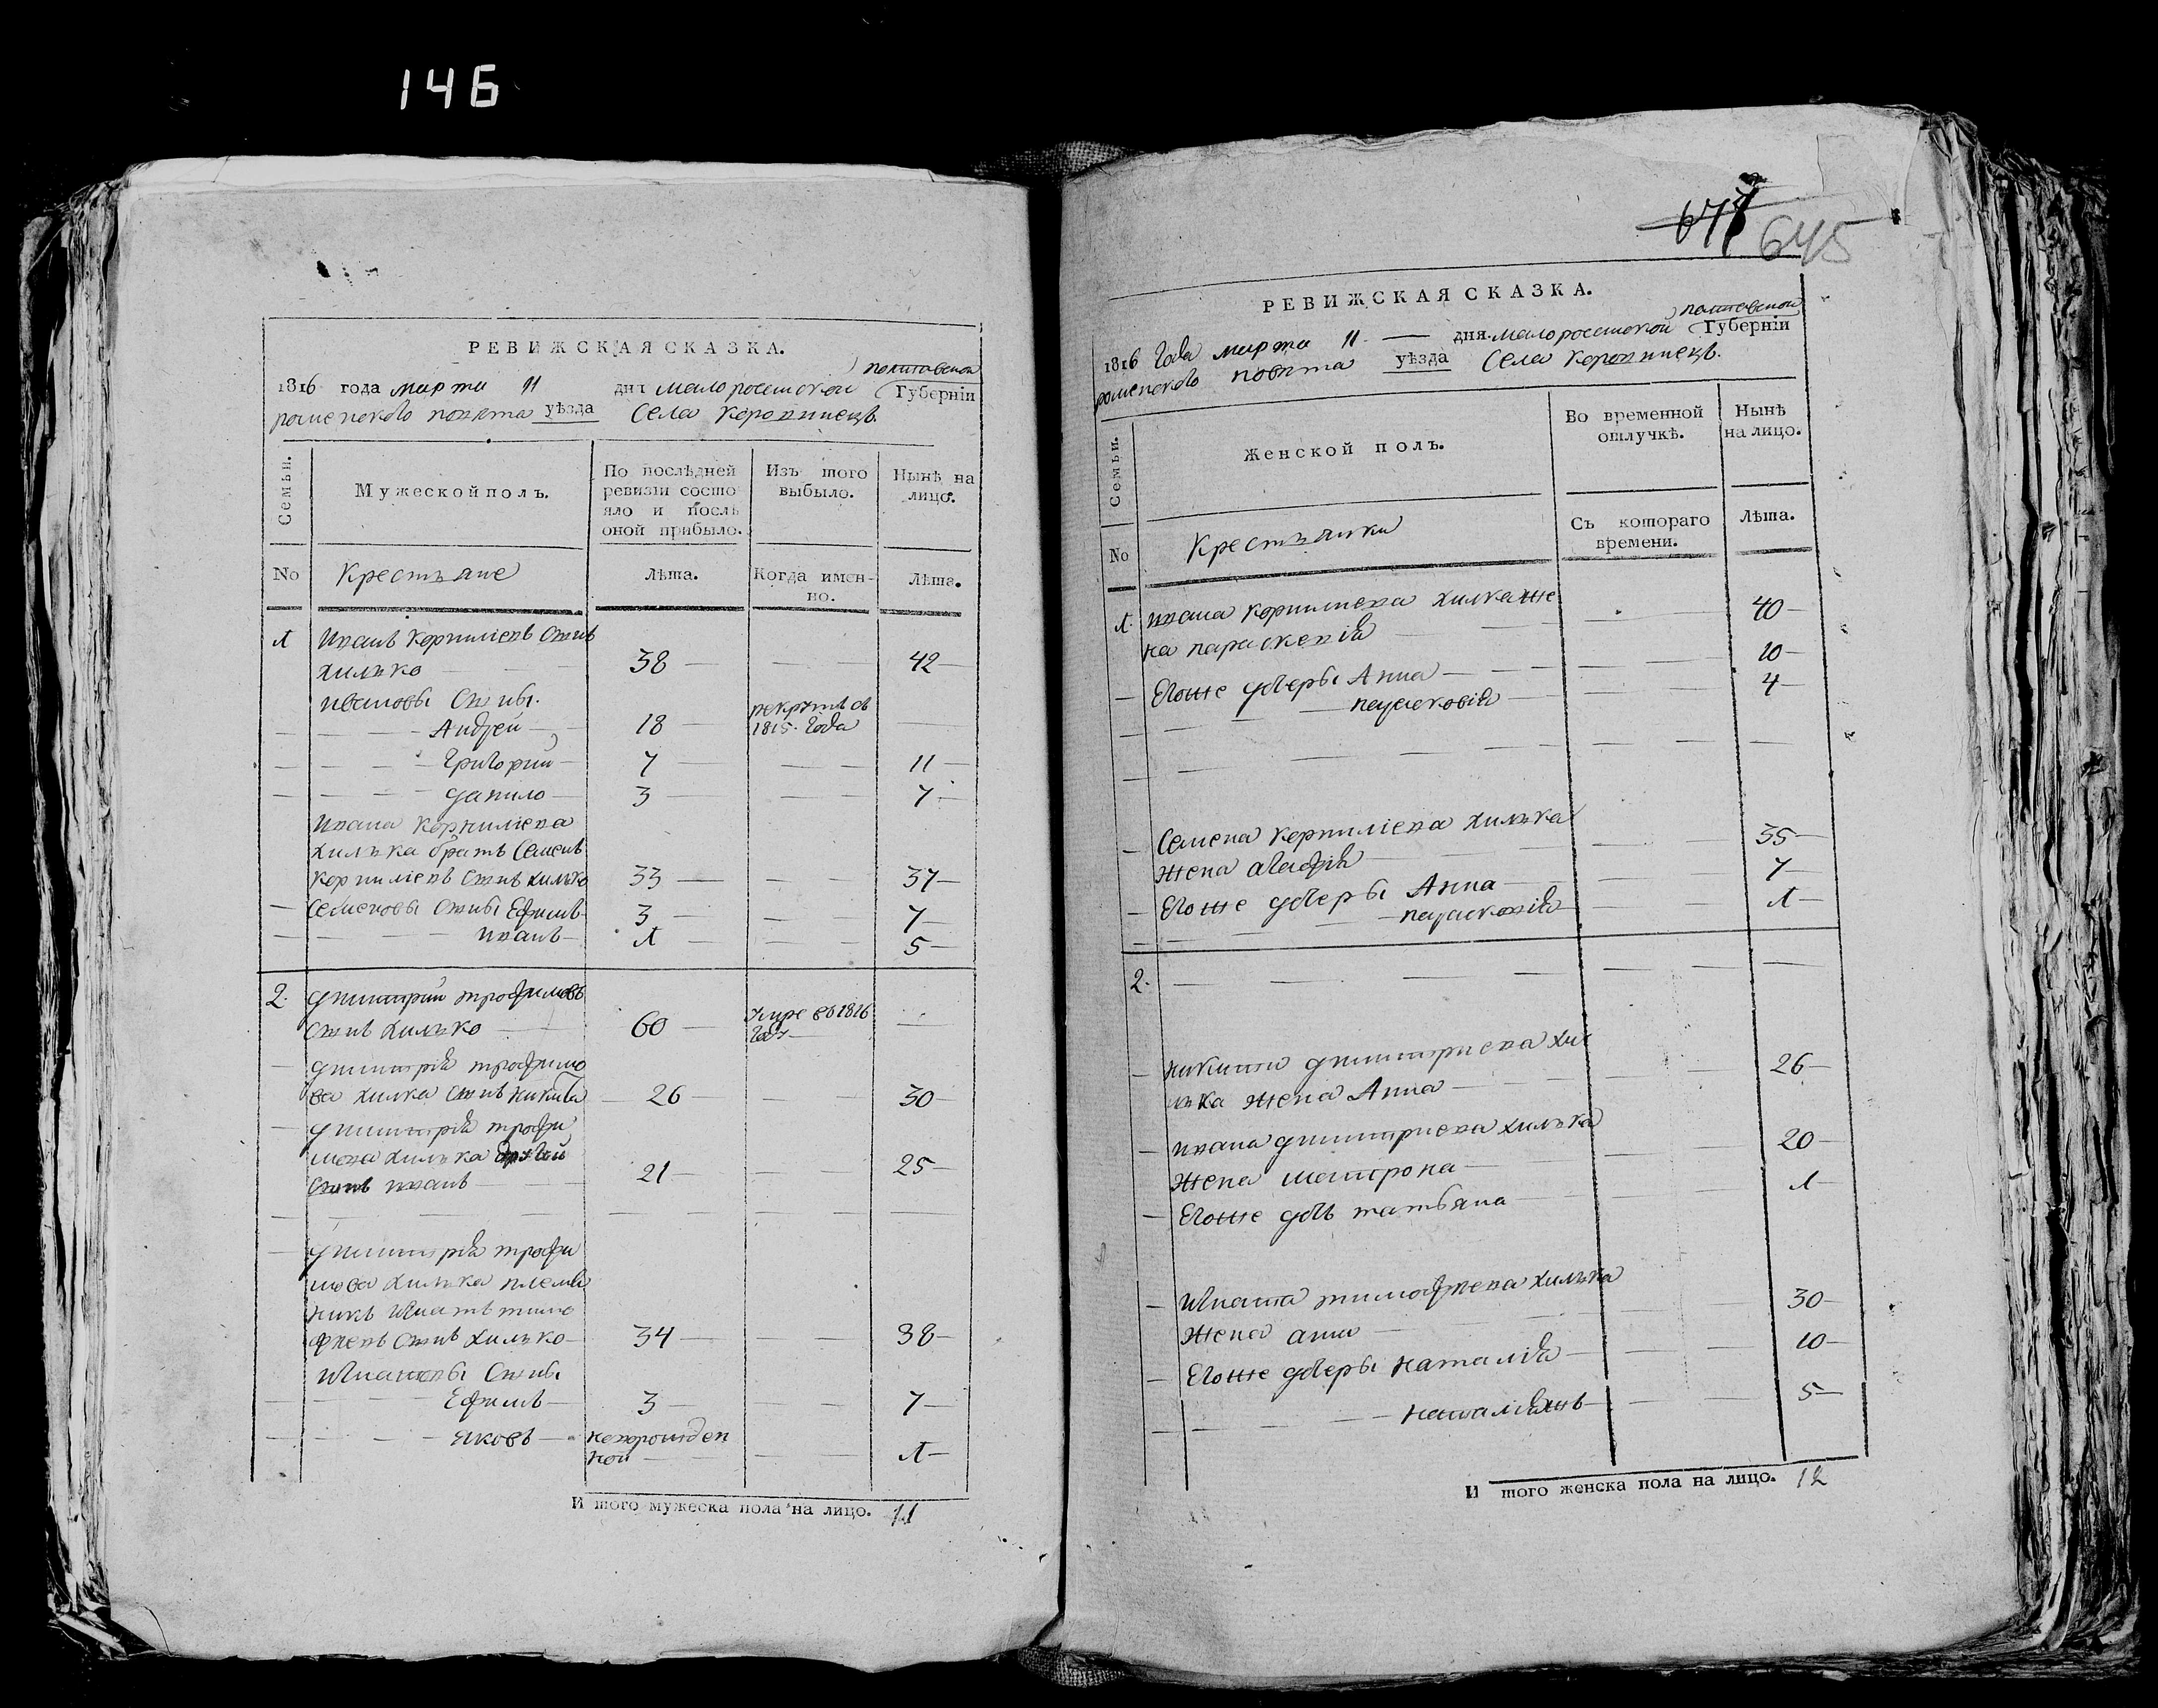 146
РЕВИЖСКАЯ СКАЗКА.
полтавской
1816 года марта 11 дня малоросійской Губерніи
роменского повѣта уѣзда Села коровинецъ.
Семьи.
Мужеской полъ.
По послѣдней ревизіи состояло и послѣ оной прибыло.
Изъ того выбыло.
Нынѣ на лицо.
No
Крестьяне
Лѣта.
Когда именно.
Лѣта.
1 Иванъ Корниліевъ Сынъ
хилько 38 42
Ивановы Сыны.
Андрей 18 рекрутъ съ 1815 года
Григорий 7 11
данило 3 7
Ивана Корниліева
хилька братъ Семенъ
Корниліевъ Сынъ хилько 33 37
Семеновы Сыны Ефимъ 3 7
иванъ 1 5
2. дмитрий трофимовъ
Сынъ хилько 60 умре въ 1816 году
дмитрія трофимо
ва хилка Сынъ никита 26 30
дмитрія трофи
мова хилька другий
Сынъ иванъ 21 25
дмитрія трофи
мова хилька племя
никъ игнатъ тимо
фѣевъ Сынъ хилько 34 38
игнатовы Сыны
Ефимъ 3 7
яковъ новорожден
ной 1
И того мужеска пола на лицо. 11
645
РЕВИЖСКАЯ СКАЗКА.
полтавской
1816 года марта 11 дня малоросійской Губерніи
роменского повѣта уѣзда Села коровинецъ.
Семьи.
Женской полъ.
Во временной отлучкѣ.
Нынѣ на лицо.
No
Крестьянки
Съ котораго времени.
Лѣта.
1. ивана корнилиева хилка же
на параскевія 40
Егоже дочеры Анна 10
парасковія 4
Семена корниліева хилька
жена агафія 35
Егоже дочеры Анна 7
парасковія 1
2.
никити дмитриева хи
лька жена Анна 26
ивана дмитриева хилька
жена матрона 20
Егоже дочь татьяна 1
игната тимофѣева хилька
жена анна 30
Егоже дочеры наталія 10
наталіяжъ 5
И того женска пола на лицо. 12